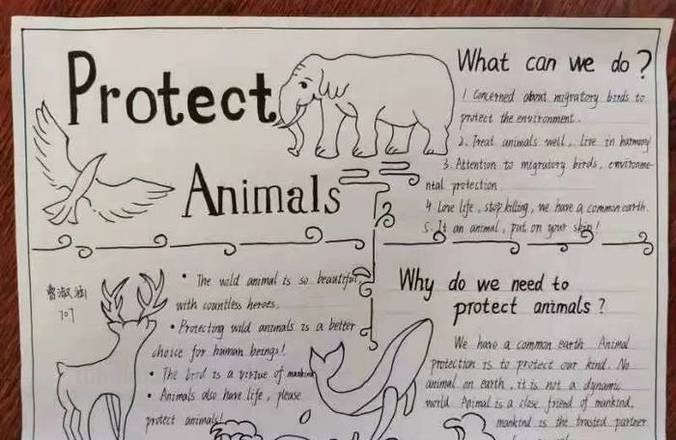 Protect
Animals
What can we do?
1. Concerned about migratory birds to
protect the environment.
2. Treat animals well, live in harmony
3. Attention to migratory birds, environme-
ntal protection
4. Love life, stop killing, we have a common earth.
5. It an animal, put on your skin!
707
• The wild animal is so beautiful,
with countless heroes.
• Protecting wild animals is a better
choice for human beings!
• The bird is a virtue of mankind
• Animals also have life, please
protect animals!
Why do we need to
protect animals?
We have a common earth. Animal
protection is to protect our kind. No
animal on earth, it is not a dynamic
world. Animal is a close friend of mankind,
mankind is the trusted partner